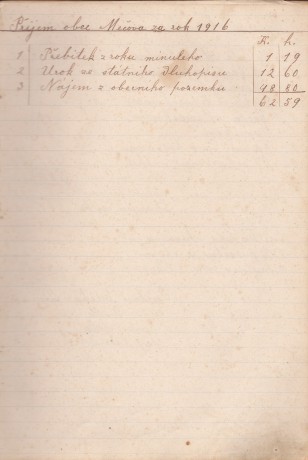 Příjem obce Mečova za rok 1916
K. h.
1 Přebitek z roku minulého 1 19
2 Urok ze státního dluhopisu 12 60
3 Nájem z obecního pozemku 48 80
62 59